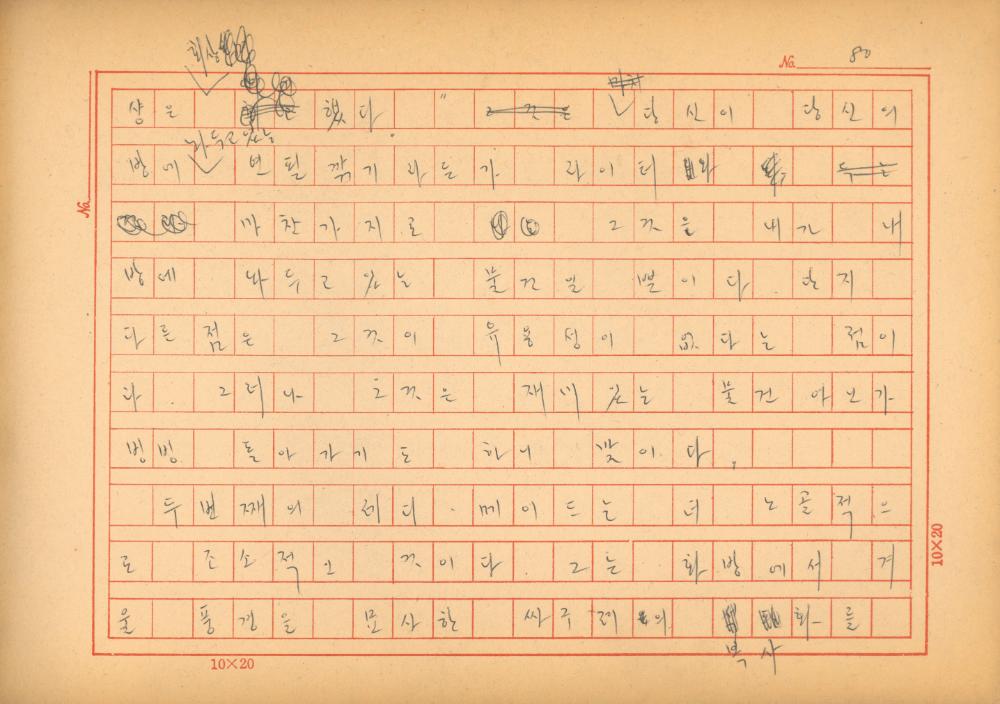 No. 80
회상
마치
샹은 했다. " 그것은 당신이 당신의
놔두고 있는
방에 연필 깎기라든가 라이터와 두는
마찬가지로 그것을 내가 내
방에 놔두고 있는 물건일 뿐이다. 단지
다른 점은 그것이 유용성이 없다는 점이
다. 그러나 그것은 재미있는 물건
빙빙 돌아가기도 하니
두번째의 레디·메이드는 더 노골적으
로 조소적인 것이다. 그는 화방에서 겨
울 풍경을 묘사한 싸구려의 화를
복사
No.
10×20
10×20